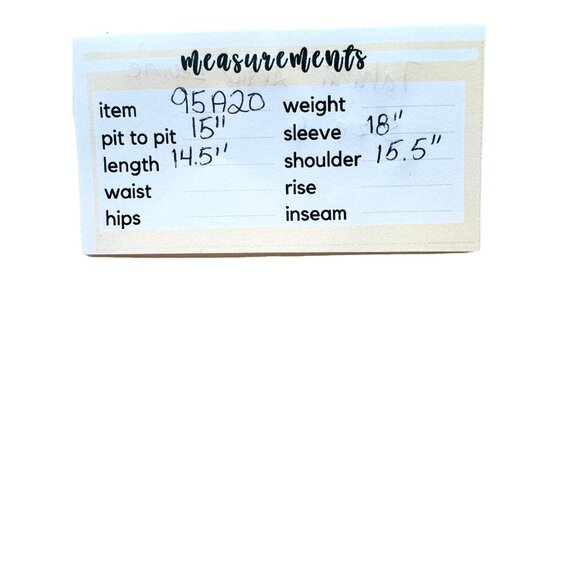 measurements
item 95A20 weight
pit to pit 15" sleeve 18"
length 14.5" shoulder 15.5"
waist rise
hips inseam